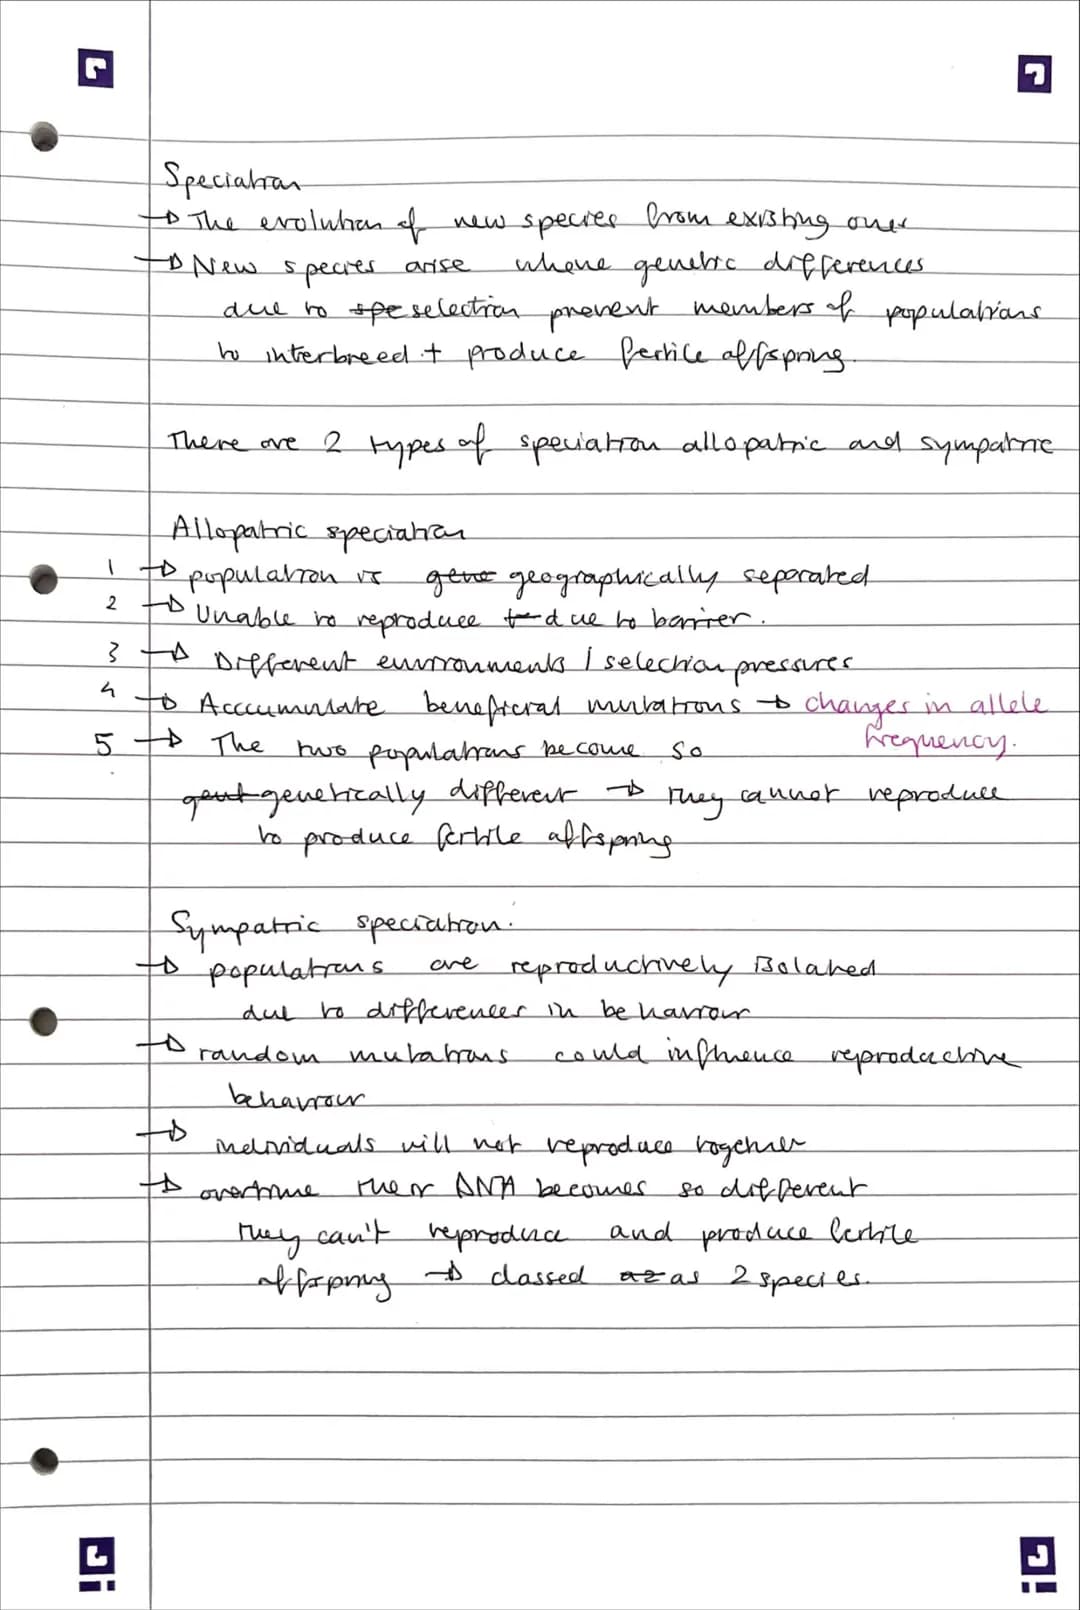 Speciation
→ The evolution of new species from existing ones
→ New species arise where genetic differences
due to spe selection prevent members of populations
to interbreed + produce fertile offspring.
There are 2 types of speciation allopatric and sympatric
Allopatric speciation
1 → population is gene geographically separated
2 → Unable to reproduce to due to barrier.
3 → Different environments / selection pressures
4 → Acccumulate beneficial mutations → changes in allele
frequency.
5 → The two populations become so
gent genetically different → they cannot reproduce
to produce fertile offspring
Sympatric speciation:
→ populations are reproductively isolated
due to differences in behaviour
→ random mutations could influence reproductive
behaviour
→ individuals will not reproduce together
→ overtime their DNA becomes so different
they can't reproduce and produce fertile
offspring → classed as as 2 species.